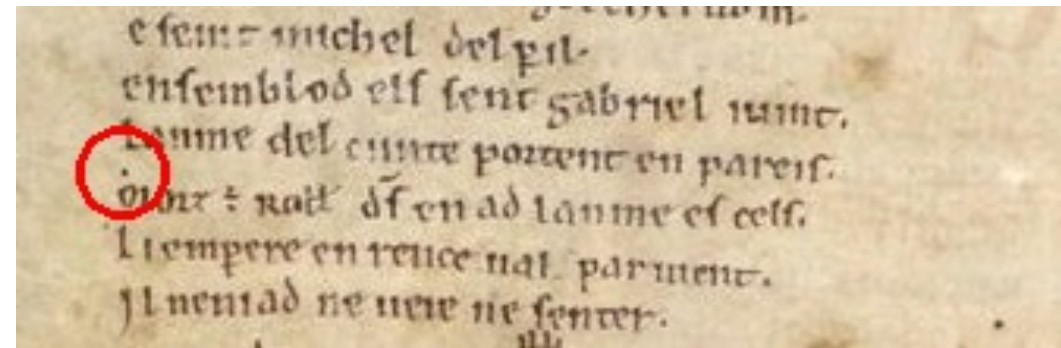 e seint michel del pil.
ensemblod els sent gabriel uint.
Lanme del cunte portent en pareis.
Morz ÷ Roll' d̄s en ad lanme es cels.
Li empere en rence ual paruient.
Il nen i ad ne ueie ne senter.